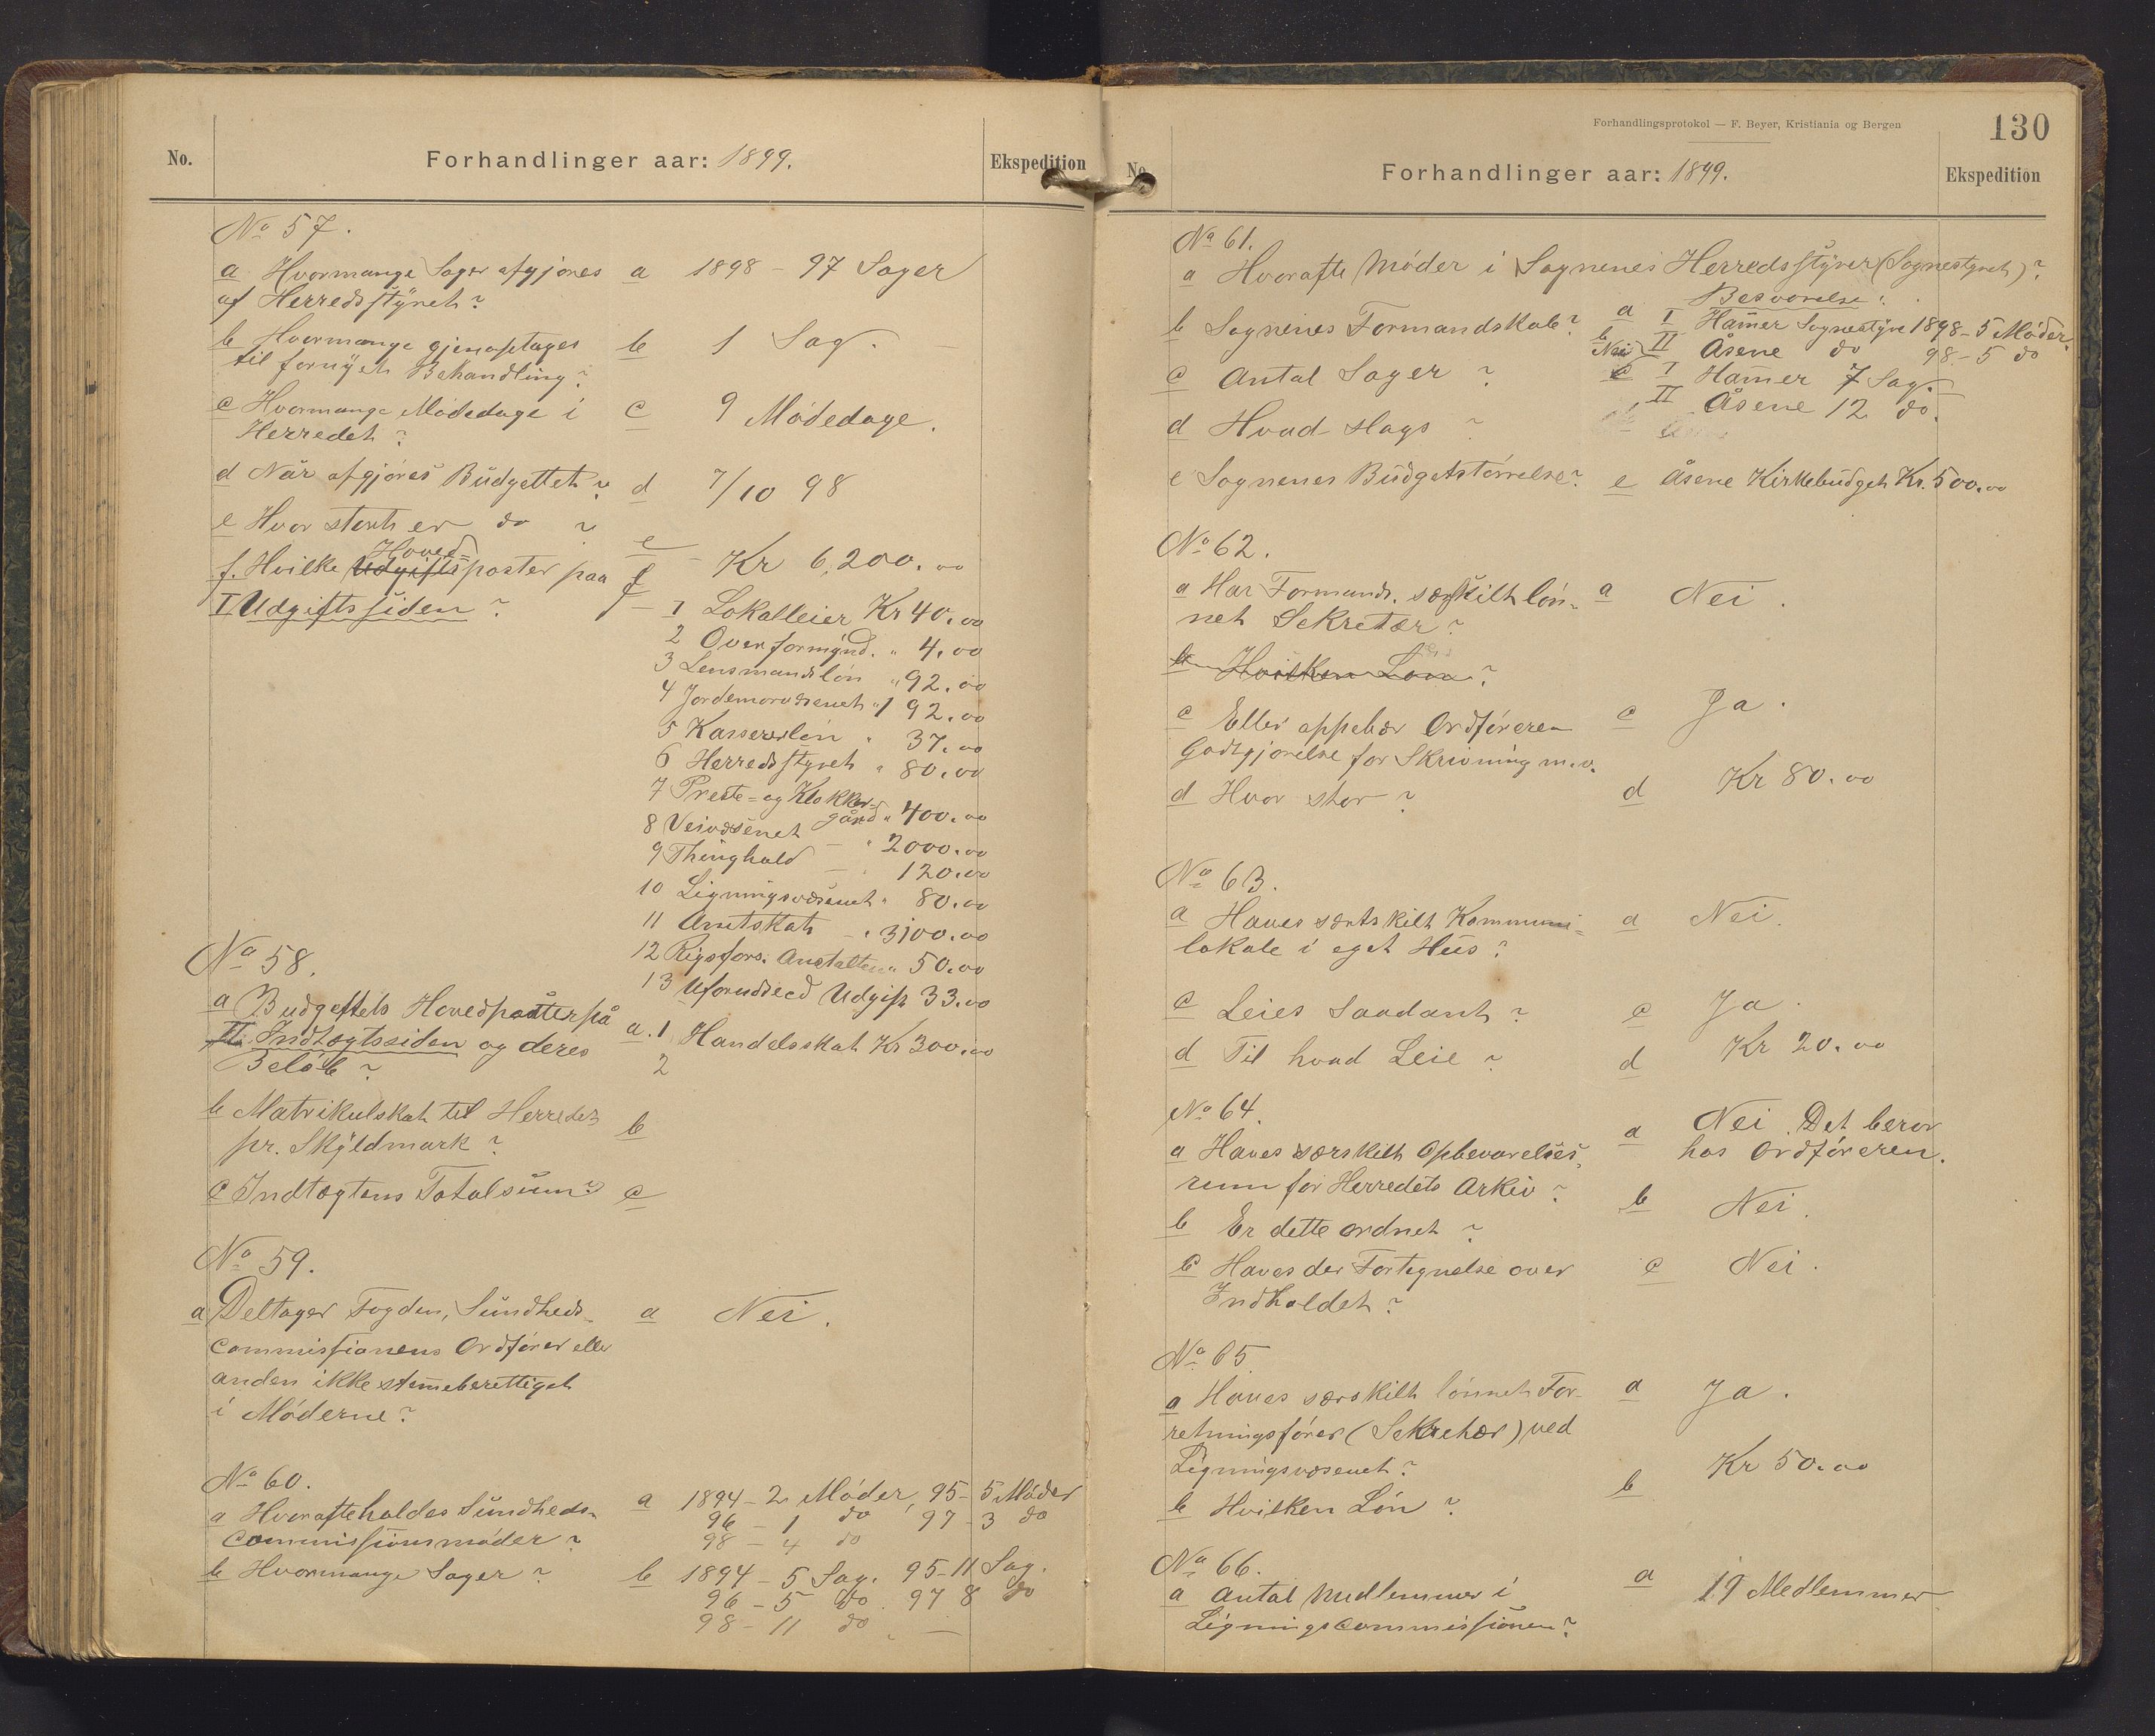 No. Forhandlinger aar: 1899. Ekspedition
No 57.
a Hvormange Sager afgjöres a 1898 - 97 Sager
af Herredsstyret?
b Hvormange gjenoptages b 1 Sag.
til fornyet Behandling?
c Hvormange Mödedage i c 9 Mödedage.
Herredet?
d Når afgjöres Budgettet? d 7/10 98
e Hvor stort er do ? e Kr 6,200.00
Hoved=
f. Hvilke Udgiftsposter paa f
I Udgiftssiden? f - 1 Lokalleier Kr 40.00
2 Overformynd. " 4.00
3 Lensmandslön " 92.00
4 Jordemorvæsenet " 192.00
5 Kassererlön " 37.00
6 Herredsstyret " 80.00
7 Preste- og Klokker-
gård " 400.00
8 Veivæsenet - " 2000.00
9 Thinghald - " 120.00
10 Ligningsvæsenet " 80.00
11 Amtskat - " 3100.00
12 Rigsfors. Anstalten " 50.00
13 Uforudseed Udgift 33.00
No 58.
a Budgettets Hovedposter på
II Indtægtssiden og deres a. 1 Handelsskat Kr 300.00
Belöb? 2
b Matrikulskat til Herredet b
pr. Skyldmark?
c Indtægtens Totalsum? c
No 59.
a Deltager Fogden, Sundheds- a Nei.
commissionens Ordförer eller
anden ikke stemeberettiget
i Möderne?
No 60.
a Hvorofte holdes Sundheds- a 1894 - 2 Möder, 95 - 5 Möder
commissionsmöder? 96 - 1 do 97 - 3 do
98 - 4 do
b Hvormange Sager? b 1894 - 5 Sag. 95 - 11 Sag.
96 - 5 do. 97 8 do
98 - 11 do.
Forhandlingsprotokol — F. Beyer, Kristiania og Bergen
130
No. Forhandlinger aar: 1899. Ekspedition
No 61.
a Hvorofte Möder i Sognenes Herredsstyrer (Sognestyret)?
Besvarelse:
b Sognenes Formandskab? a I Hamer Sognestyre 1898 - 5 Möder.
b Nei II Åsene do 98 - 5 do
c Antal Sager? c I Hamer 7 Sag.
II Åsene 12 do.
d Hvad slags ?
e Sognenes Budgetstörrelse? e Åsene Kirkebudget Kr. 500.00
No 62.
a Har Formands. særskilt lön- a Nei.
net Sekretær?
b Hvilken Lön?
c Eller oppebær Ordföreren c Ja.
Godtgjörelse for Skrivning m.v.
d Hvor stor? d Kr 80.00
No 63.
a Haves særskilt Kommuni- a Nei.
lokale i eget Hus?
c Leies saadant? c Ja.
d Til hvad Leie? d Kr 20.00
No 64.
a Haves særskilt Opbevarelses- a Nei. Det beror
rum for Herredets Arkiv? hos Ordföreren.
b Er dette ordnet? b Nei.
c Haves der Fortegnelse over c Nei.
Indholdet?
No 65.
a Haves særskilt lönnet For- a Ja.
retningsförer (Sekretær) ved
Ligningsvæsenet?
b Hvilken Lön? b Kr 50.00
No 66.
a Antal Medlemmer i a 19 Medlemmer
Ligningscommissionen?